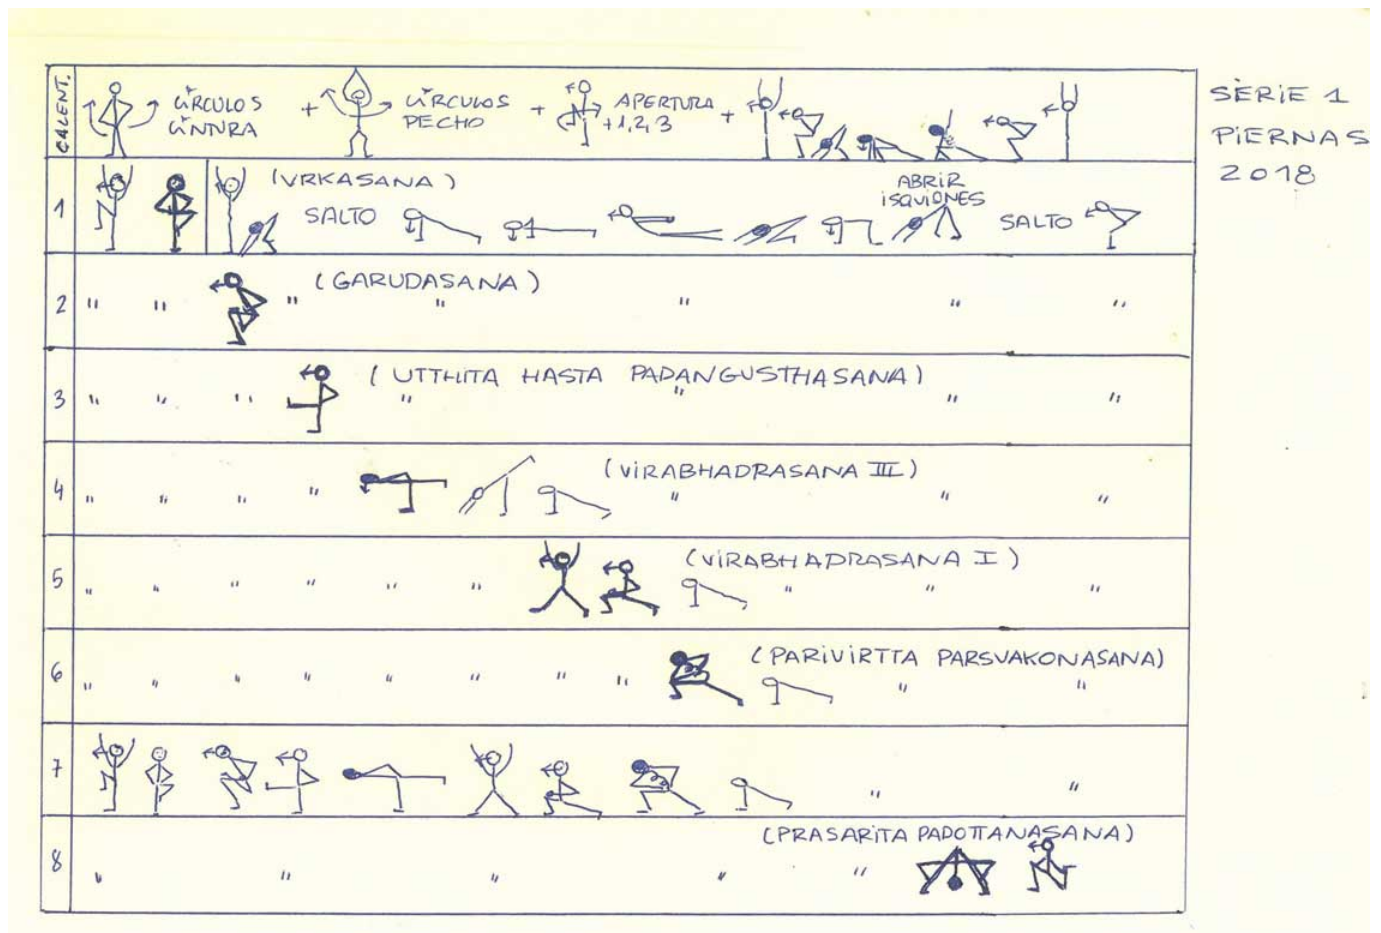 SERIE 1
PIERNAS
2018
CALENT.
CÍRCULOS
CINTURA
+
CÍRCULOS
PECHO
+
APERTURA
+1,2,3
+
1
(VRKASANA)
SALTO
ABRIR
ISQUIONES
SALTO
2
" " " (GARUDASANA) " " " "
3
" " " (UTTHITA HASTA PADANGUSTHASANA)
" " " "
4
(VIRABHADRASANA III)
" " " " " " "
5
(VIRABHADRASANA I)
" " " " " " " " "
6
(PARIVIRTTA PARSVAKONASANA)
" " " " " " " " " "
7
" "
8
(PRASARITA PADOTTANASANA)
" " " " "